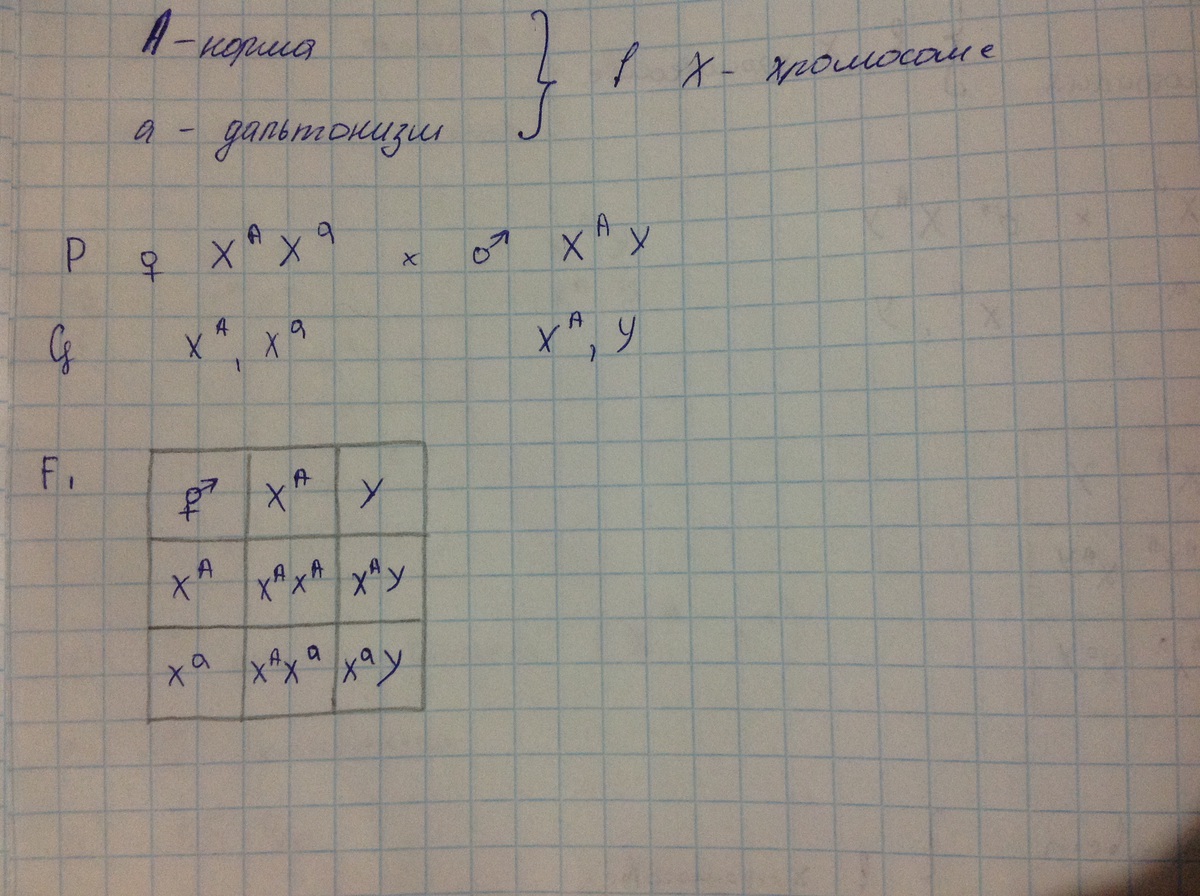 A - норма
а - дальтонизм } в X - хромосоме
P ♀ X^A X^a x ♂ X^A Y
G X^A, X^a X^A, Y
F₁
♀♂ X^A Y
X^A X^A X^A X^A Y
X^a X^A X^a X^a Y